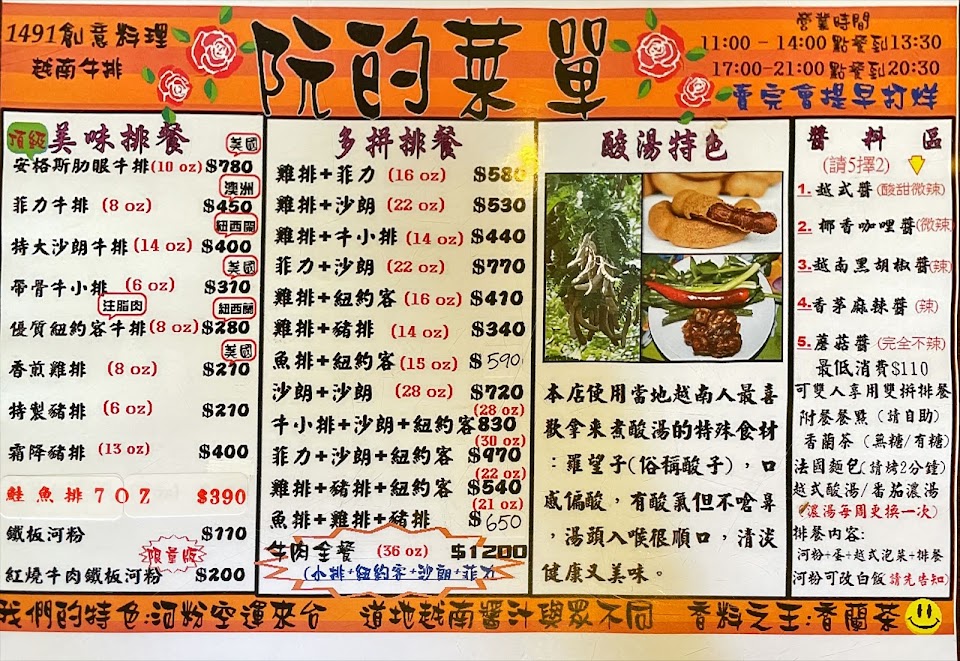 1491創意料理
越南牛排
阮的菜單
營業時間
11:00 - 14:00 點餐到13:30
17:00-21:00 點餐到20:30
賣完會提早打烊
頂級 美味排餐
美國
安格斯肋眼牛排(10 oz) $780
澳洲
菲力牛排 (8 oz) $450
紐西蘭
特大沙朗牛排 (14 oz) $400
美國
帶骨牛小排 (6 oz) $370
注脂肉 紐西蘭
優質紐約客牛排(8 oz) $280
美國
香煎雞排 (8 oz) $270
特製豬排 (6 oz) $210
霜降豬排 (13 oz) $400
鮭魚排 7OZ $390
鐵板河粉 $110
限量版
紅燒牛肉鐵板河粉 $200
多拼排餐
雞排+菲力 (16 oz) $580
雞排+沙朗 (22 oz) $530
雞排+牛小排 (14 oz) $440
菲力+沙朗 (22 oz) $770
雞排+紐約客 (16 oz) $410
雞排+豬排 (14 oz) $340
魚排+紐約客 (15 oz) $590
沙朗+沙朗 (28 oz) $720
(28 oz)
牛小排+沙朗+紐約客830
(30 oz)
菲力+沙朗+紐約客 $970
(22 oz)
雞排+豬排+紐約客 $540
(21 oz)
魚排+雞排+豬排 $650
牛肉全餐 (36 oz) $1200
(小排+紐約客+沙朗+菲力)
酸湯特色
本店使用當地越南人最喜
歡拿來煮酸湯的特殊食材
：羅望子(俗稱酸子)，口
感偏酸，有酸氣但不嗆鼻
，湯頭入喉很順口，清淡
健康又美味。
醬料區
(請5擇2)
1. 越式醬(酸甜微辣)
2. 椰香咖哩醬(微辣)
3. 越南黑胡椒醬(辣)
4. 香茅麻辣醬 (辣)
5. 蘑菇醬 (完全不辣)
最低消費$110
可雙人享用雙拼排餐
附餐餐點 (請自助)
香蘭茶 (無糖/有糖)
法國麵包(請烤2分鐘)
越式酸湯/番茄濃湯
(濃湯每周更換一次)
排餐內容:
河粉+蛋+越式泡菜+排餐
河粉可改白飯(請先告知)
我們的特色:河粉空運來台 道地越南醬汁與眾不同 香料之王:香蘭茶